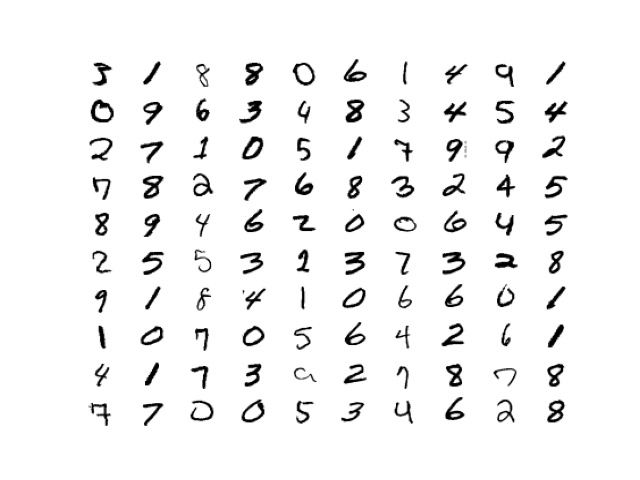 3 1 8 8 0 6 1 4 9 1
0 9 6 3 4 8 3 4 5 4
2 7 1 0 5 1 7 9 9 2
7 8 2 7 6 8 3 2 4 5
8 9 4 6 2 0 0 6 4 5
2 5 5 3 1 3 7 3 2 8
9 1 8 4 1 0 6 6 0 1
1 0 7 0 5 6 4 2 6 1
4 1 7 3 2 7 8 7 8
7 7 0 0 5 3 4 6 2 8